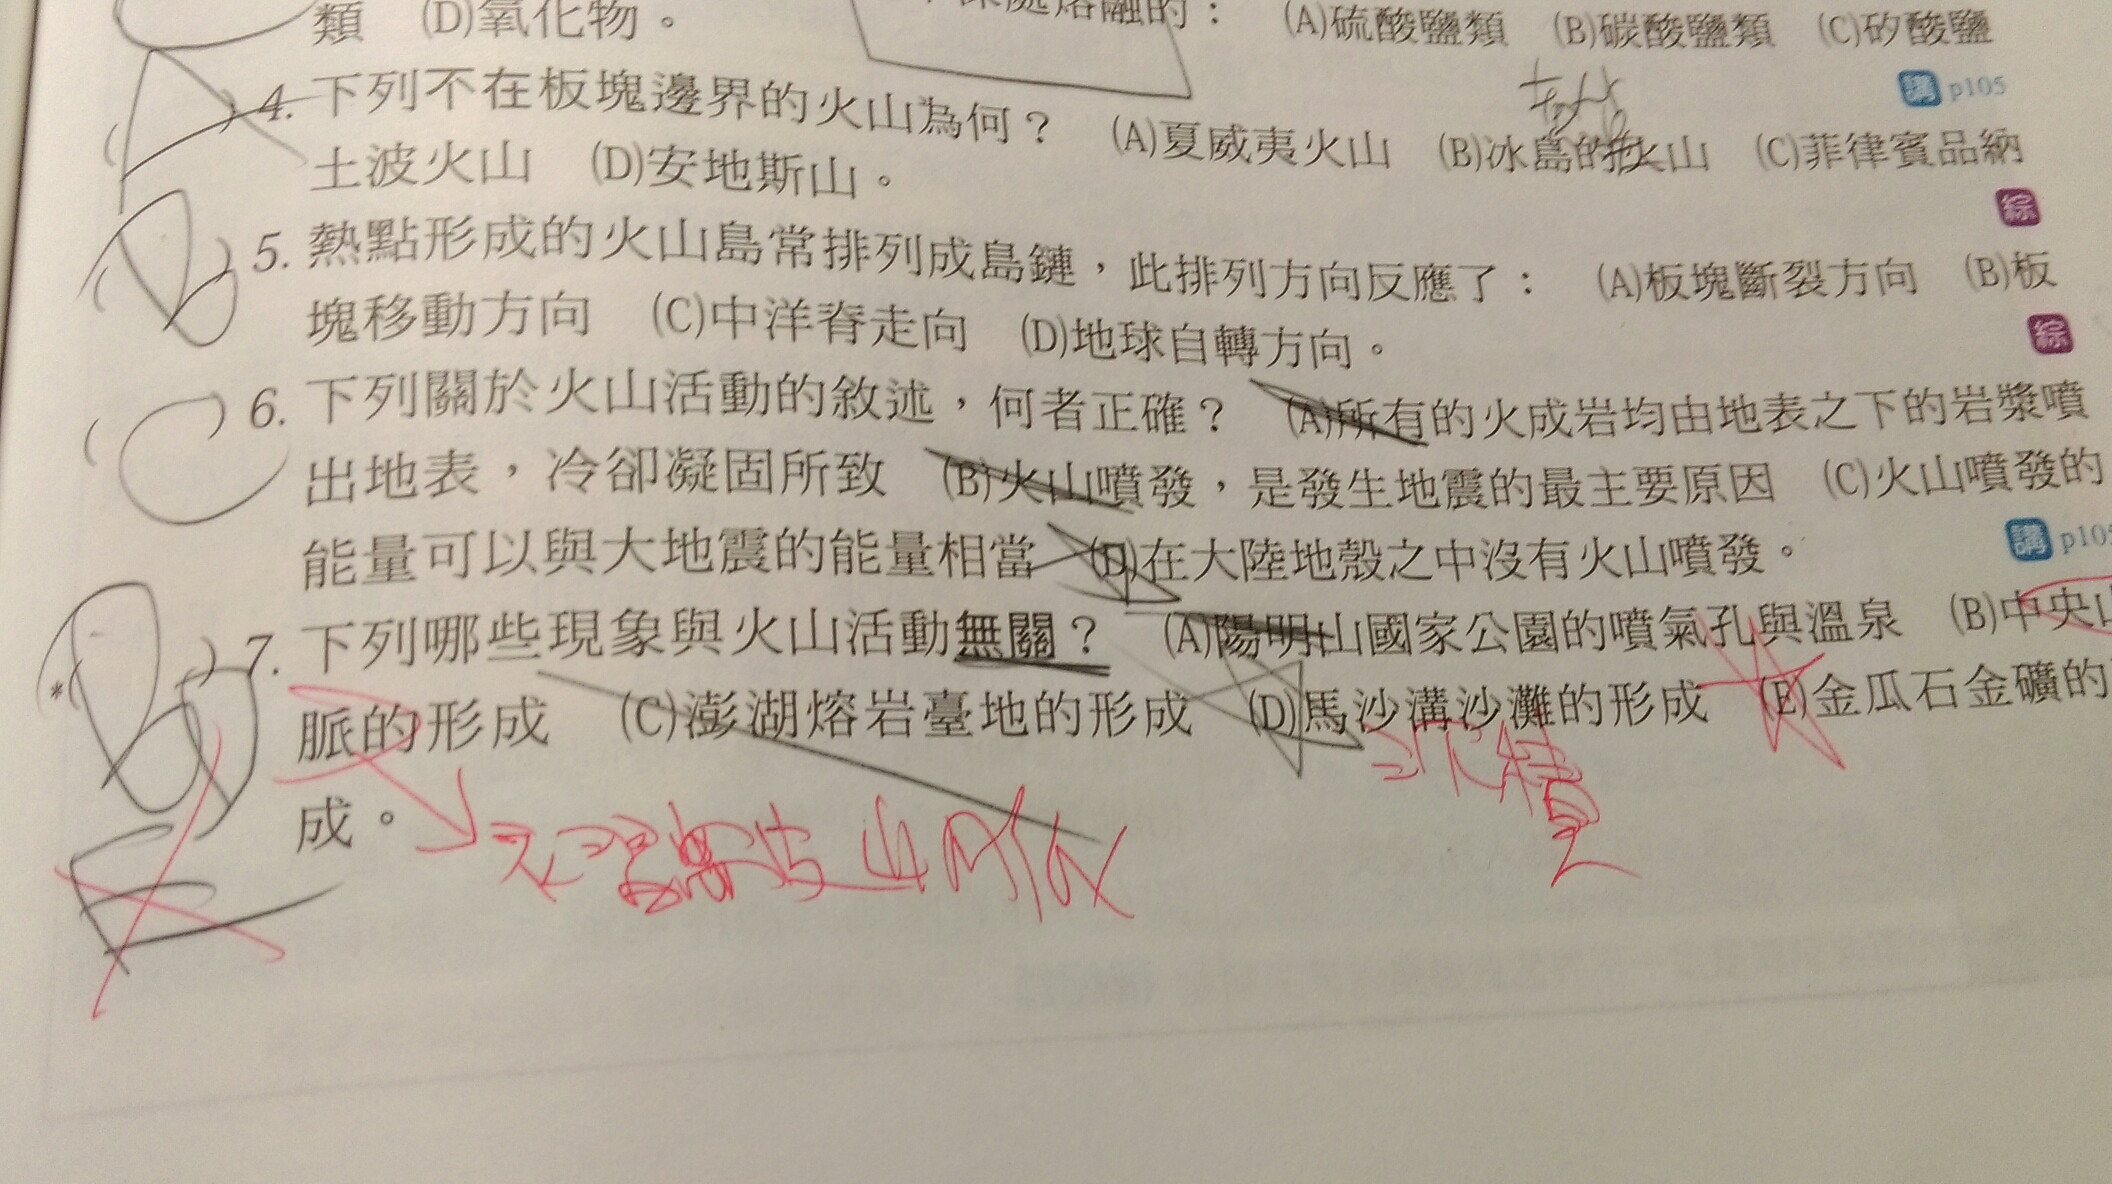 類 (D)氧化物。
熔融的： (A)硫酸鹽類 (B)碳酸鹽類 (C)矽酸鹽
講 p105
4. 下列不在板塊邊界的火山為何？ (A)夏威夷火山 (B)冰島的火山 (C)菲律賓品納
土波火山 (D)安地斯山。
綜
5. 熱點形成的火山島常排列成島鏈，此排列方向反應了： (A)板塊斷裂方向 (B)板
塊移動方向 (C)中洋脊走向 (D)地球自轉方向。
綜
6. 下列關於火山活動的敘述，何者正確？ (A)所有的火成岩均由地表之下的岩漿噴
出地表，冷卻凝固所致 (B)火山噴發，是發生地震的最主要原因 (C)火山噴發的
能量可以與大地震的能量相當 (D)在大陸地殼之中沒有火山噴發。
講 p105
*( ) 7. 下列哪些現象與火山活動無關？ (A)陽明山國家公園的噴氣孔與溫泉 (B)中央山
脈的形成 (C)澎湖熔岩臺地的形成 (D)馬沙溝沙灘的形成 (E)金瓜石金礦的
成。
沉積